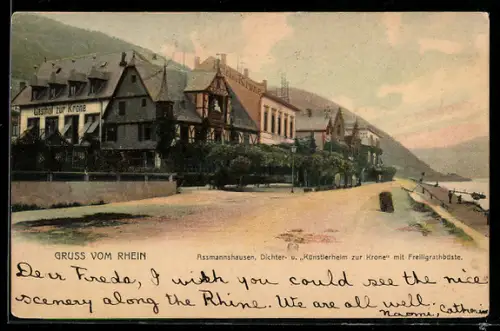 Gasthof zur Krone
GRUSS VOM RHEIN
Assmannshausen, Dichter- u. „Künstlerheim zur Krone" mit Freiligrathbüste.
Dear Freda, I wish you could see the nice
scenery along the Rhine. We are all well.
Naomi, Catherine